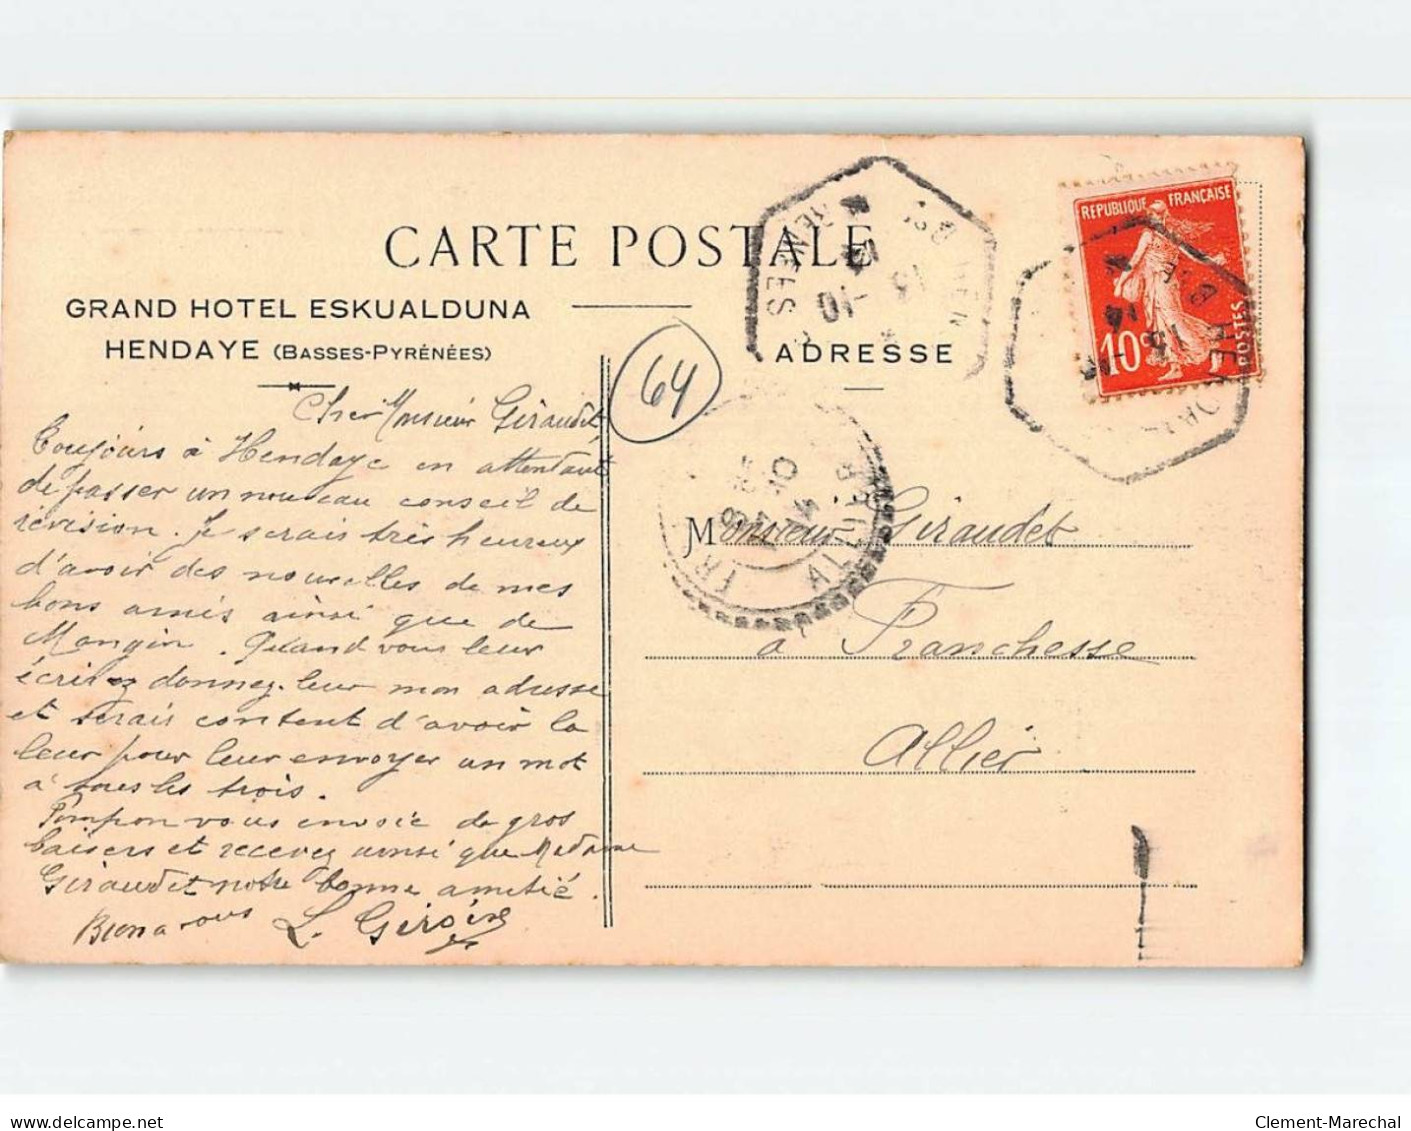 CARTE POSTALE
GRAND HOTEL ESKUALDUNA
HENDAYE (BASSES-PYRÉNÉES)
ADRESSE
64
RÉPUBLIQUE FRANÇAISE
10c
POSTES
ALLIER
Cher Monsieur Giraudet
Toujours à Hendaye en attendant
de passer un nouveau conseil de
révision. Je serais très heureux
d'avoir des nouvelles de mes
bons amis ainsi que de
Mangin. Quand vous leur
écrirez donnez-leur mon adresse
et serais content d'avoir la
leur pour leur envoyer un mot
à tous les trois.
Pompon vous envoie de gros
baisers et recevez ainsi que Madame
Giraudet notre bonne amitié.
Bien a vous L.
Monsieur Giraudet
a Franchesse
Allier
www.delcampe.net
Clement-Marechal